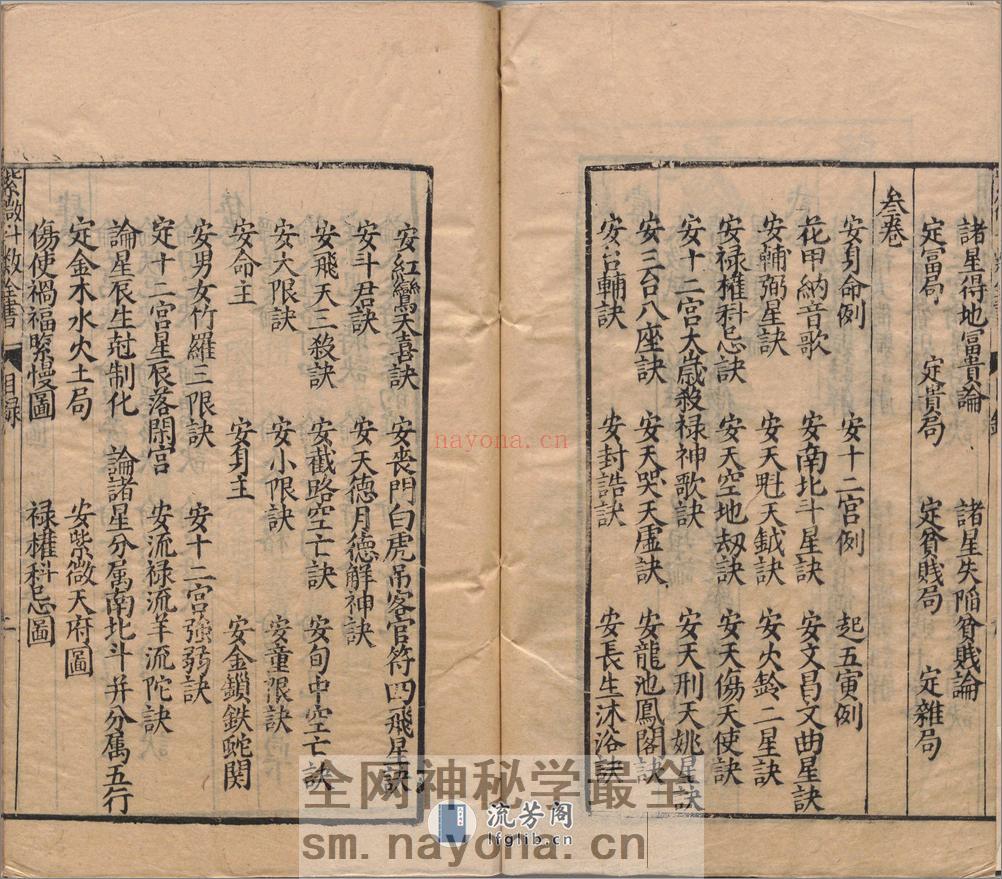 諸星得地富貴論 諸星失陷貧賤論
定富局 定貴局 定貧賤局 定雜局
叁卷
安身命例 安十二宮例 起五寅例
花甲納音歌 安南北斗星訣 安文昌文曲星訣
安輔弼星訣 安天魁天鉞訣 安火鈴二星訣
安祿權科忌訣 安天空地刼訣 安天傷天使訣
安十二宮太歲殺祿神歌訣 安天刑天姚星訣
安三台八座訣 安天哭天虛訣 安龍池鳳閣訣
安台輔訣 安封誥訣 安長生沐浴訣
安紅鸞天喜訣 安喪門白虎吊客官符四飛星訣
安斗君訣 安天德月德解神訣
安飛天三殺訣 安截路空亡訣 安旬中空亡訣
安大限訣 安小限訣 安童限訣
安命主 安身主 安金鎖鉄蛇関
安男女竹羅三限訣 安十二宮強弱訣
定十二宮星辰落閑宮 安流祿流羊流陀訣
論星辰生尅制化 論諸星分属南北斗并分属五行
定金木水火土局 安紫微天府圖
傷使禍福緊慢圖 祿權科忌圖
紫微斗數全書 目錄 二
nayona.cn
全网神秘学最全
流芳阁
lfglib.cn
sm.nayona.cn